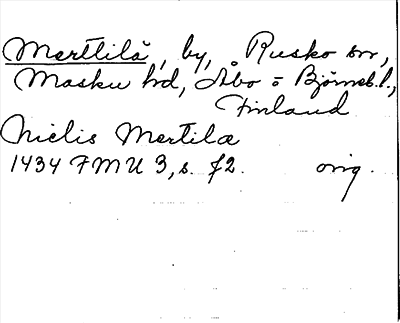 Merttilä, by, Rusko sn,
Masku hd, Åbo o Björneb. l.,
Finland
Nielis Mertila
1434 FMU 3, s. 72. orig.